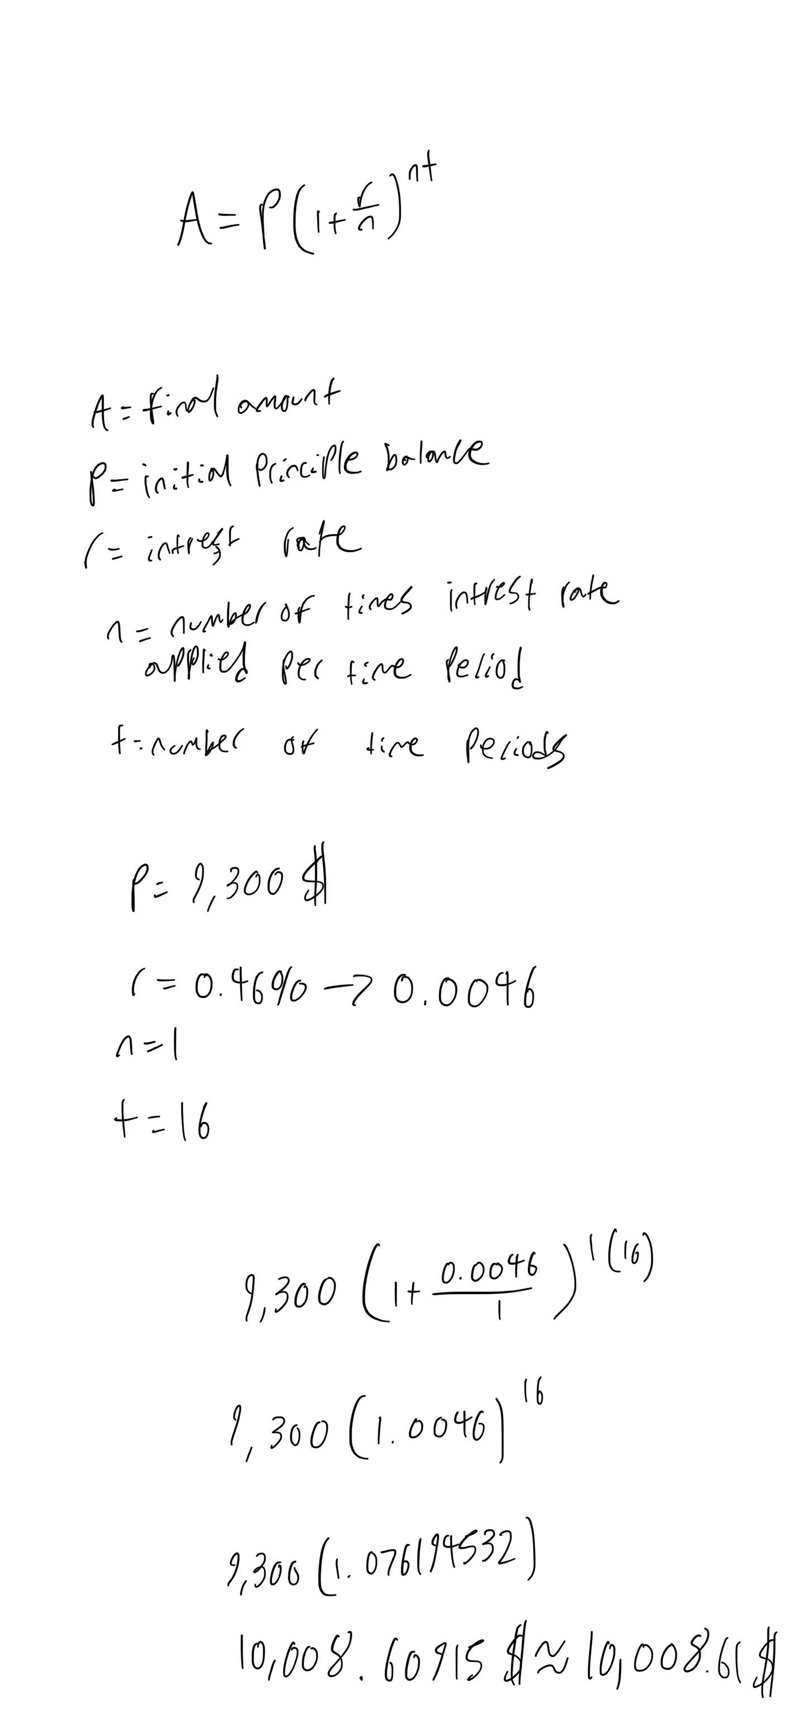 A = P(1+r/n)^nt
A = final amount
P = initial Principle balance
r = intrest rate
n = number of times intrest rate
applied per time Period
t = number of time Periods
P = 9,300 $
r = 0.46% → 0.0046
n = 1
t = 16
9,300 (1+ 0.0046/1)^1(16)
9,300 (1.0046)^16
9,300 (1.076194532)
10,008.60915 $ ≈ 10,008.61 $